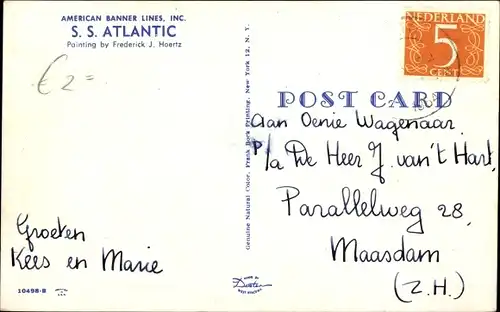 AMERICAN BANNER LINES, INC.
S. S. ATLANTIC
Painting by Frederick J. Hoertz
€ 2=
NEDERLAND
5
CENT
POST CARD
Genuine Natural Color, Frank Bors Printing, New York 12, N. Y.
Aan Oenie Wagenaar
P/a De Heer J. van't Hart,
Parallelweg 28,
Maasdam
(Z.H.)
Groeten
Kees en Marie
10498-B
Dexter
WEST NYACK, N.Y.